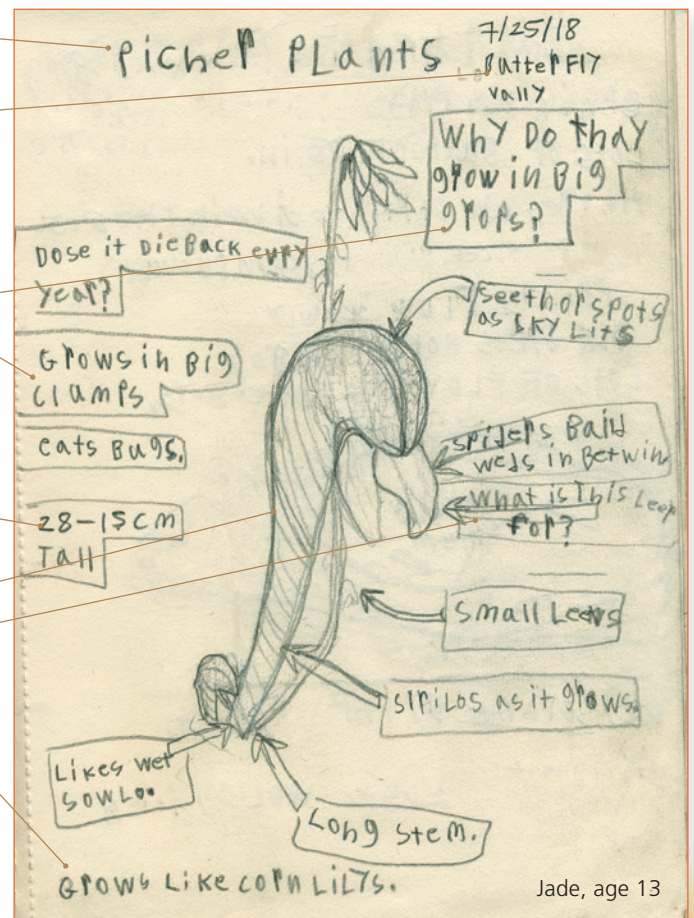 Picher Plants
7/25/18
ButterFly
vally
Why Do thay
grow in Big
grops?
Dose it Die Back evry
year?
seethor spots
as sky Lits
Grows in Big
clumps
eats Bugs.
spiders Baild
webs in Betwin
What is This Leep
for?
28-15cm
Tall
Small Leevs
sprilos as it grows.
Likes wet
sowLo.
Long stem.
Grows Like corn LiLys.
Jade, age 13